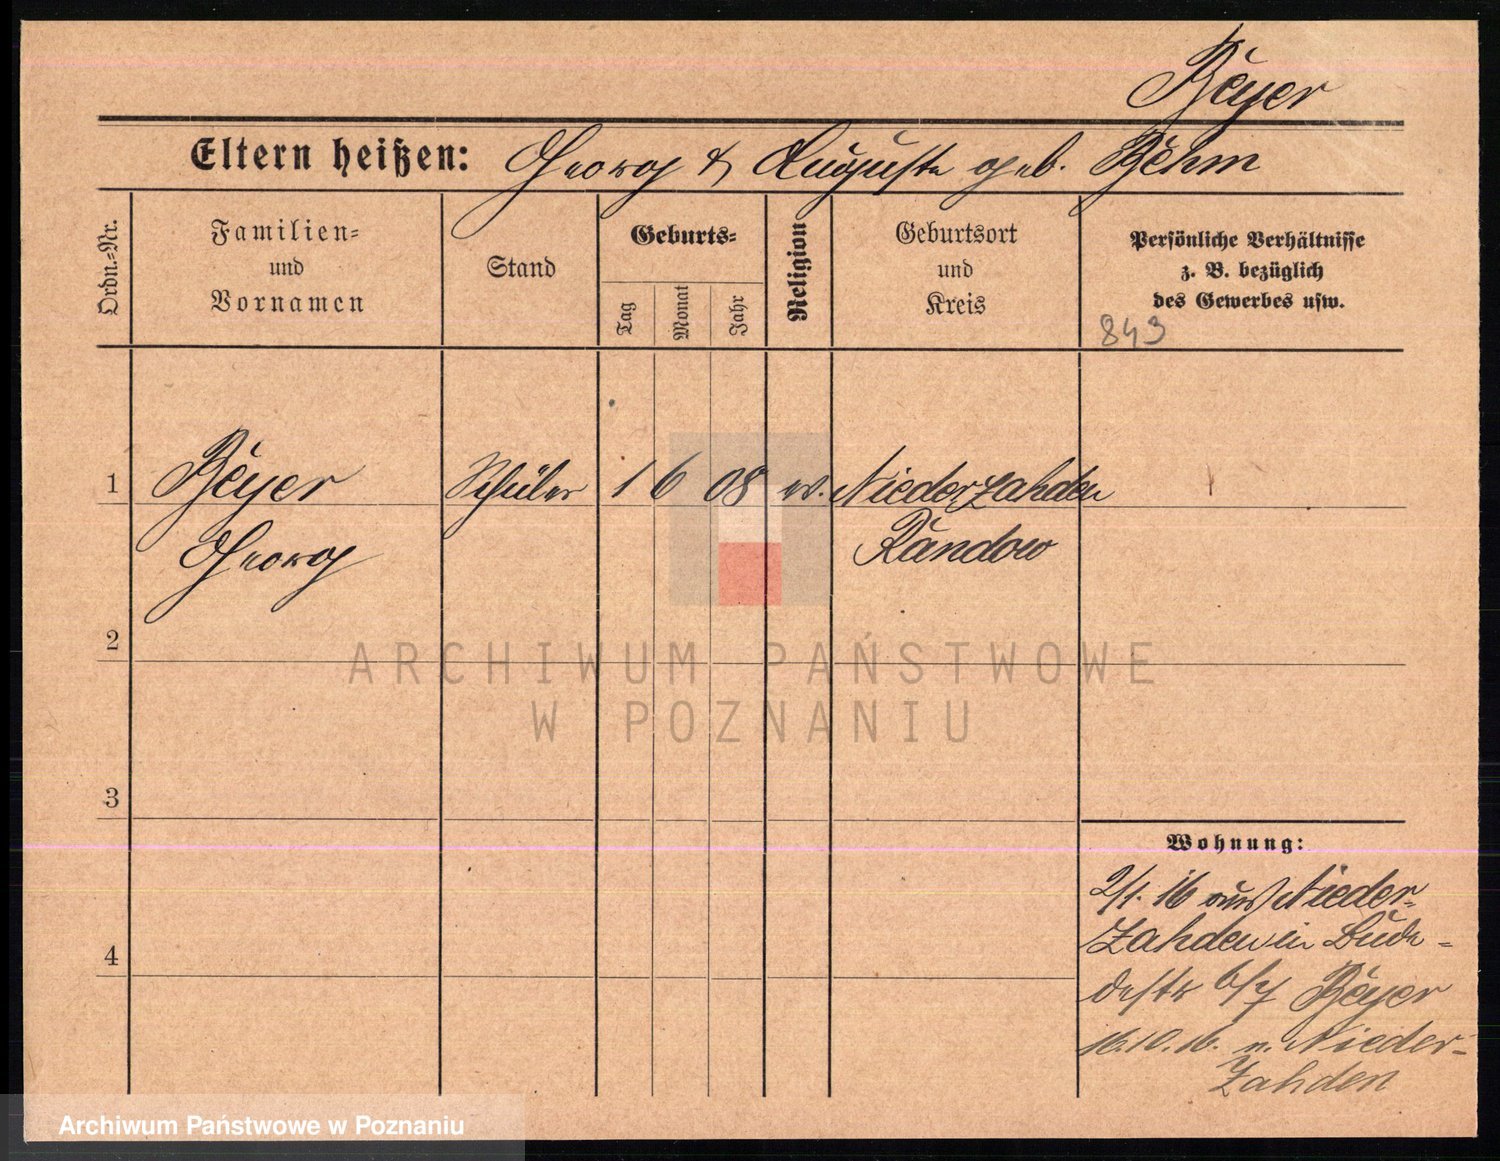 Beyer
Eltern heißen: Georg & Auguste geb. Böhm
Ordn.-Nr.
Familien-
und
Vornamen
Stand
Geburts-
Tag
Monat
Jahr
Religion
Geburtsort
und
Kreis
Persönliche Verhältnisse
z. B. bezüglich
des Gewerbes usw.
843
1 Beyer Schüler 1 6 08 ev. Niederzahden
Georg Randow
2
ARCHIWUM PAŃSTWOWE
W POZNANIU
3
Wohnung:
2/1. 16 aus Nieder-
Zahden in
4
destr 6/7 Beyer
16.10.16. n. Nieder-
Zahden
Archiwum Państwowe w Poznaniu